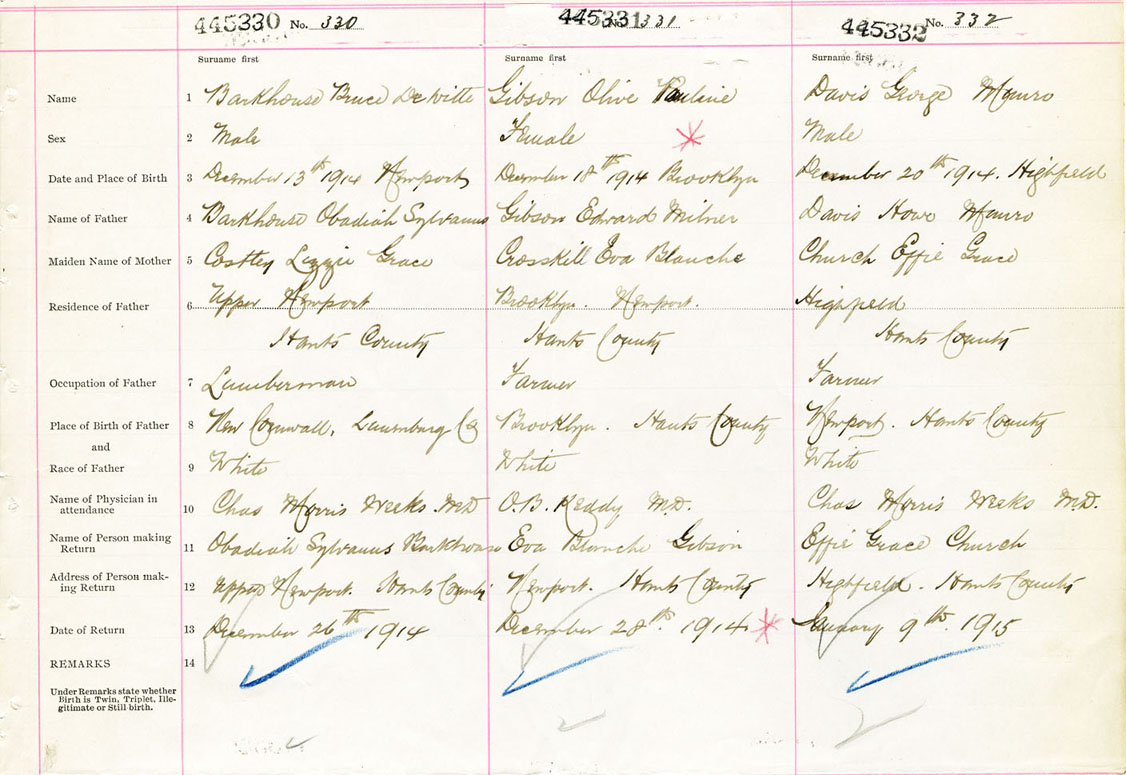 445330 No. 330 445331 331 445332 No. 332
Surname first Surname first Surname first
Name 1 Barkhouse Bruce DeWitte Gibson Olive Pauline Davis George Munro
Sex 2 Male Female Male
Date and Place of Birth 3 December 13th 1914 Newport December 18th 1914 Brooklyn December 20th 1914. Highfield
Name of Father 4 Barkhouse Obadiah Sylvanus Gibson Edward Milner Davis Howe Munro
Maiden Name of Mother 5 Costley Lizzie Grace Crosskill Eva Blanche Church Effie Grace
Residence of Father 6 Upper Newport Brooklyn. Newport. Highfield
Hants County Hants County Hants County
Occupation of Father 7 Lumberman Farmer Farmer
Place of Birth of Father 8 New Cornwall, Lunenburg Co Brooklyn. Hants County Newport. Hants County
and
Race of Father 9 White White White
Name of Physician in
attendance 10 Chas Morris Weeks M.D O.B. Keddy M.D. Chas Morris Weeks M.D.
Name of Person making
Return 11 Obadiah Sylvanus Barkhouse Eva Blanche Gibson Effie Grace Church
Address of Person mak-
ing Return 12 Upper Newport. Hants County Newport. Hants County Highfield. Hants County
Date of Return 13 December 26th 1914 December 28th. 1914 January 9th. 1915
REMARKS 14
Under Remarks state whether
Birth is Twin, Triplet, Ille-
gitimate or Still-birth.